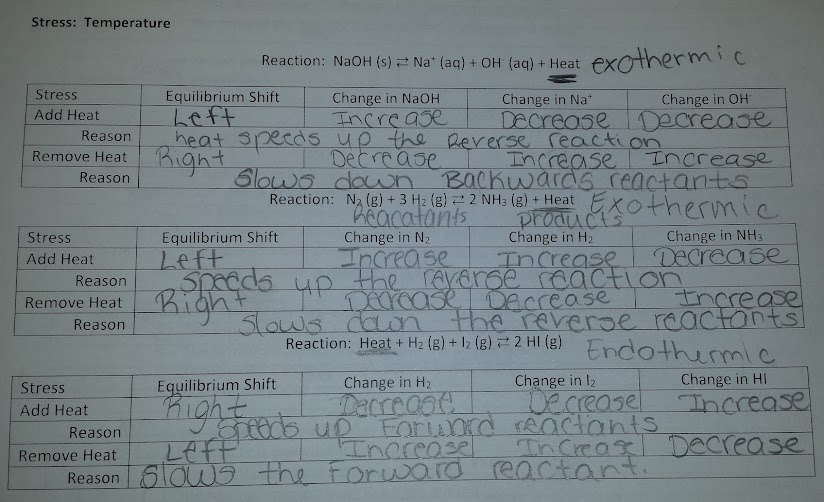 Stress: Temperature
Reaction: NaOH (s) ⇄ Na⁺ (aq) + OH (aq) + Heat exothermic
Stress Equilibrium Shift Change in NaOH Change in Na⁺ Change in OH⁻
Add Heat Left Increase Decrease Decrease
Reason heat speeds up the Reverse reaction
Remove Heat Right Decrease Increase Increase
Reason Slows down Backwards reactants
Reaction: N₂ (g) + 3 H₂ (g) ⇄ 2 NH₃ (g) + Heat Exothermic
Reacatants products
Stress Equilibrium Shift Change in N₂ Change in H₂ Change in NH₃
Add Heat Left Increase Increase Decrease
Reason Speeds up the reverse reaction
Remove Heat Right Decrease Decrease Increase
Reason Slows down the reverse reactants
Reaction: Heat + H₂ (g) + I₂ (g) ⇄ 2 HI (g) Endothermic
Stress Equilibrium Shift Change in H₂ Change in I₂ Change in HI
Add Heat Right Decrease Decrease Increase
Reason Speeds up Forward reactants
Remove Heat Left Increase Increase Decrease
Reason Slows the Forward reactant.